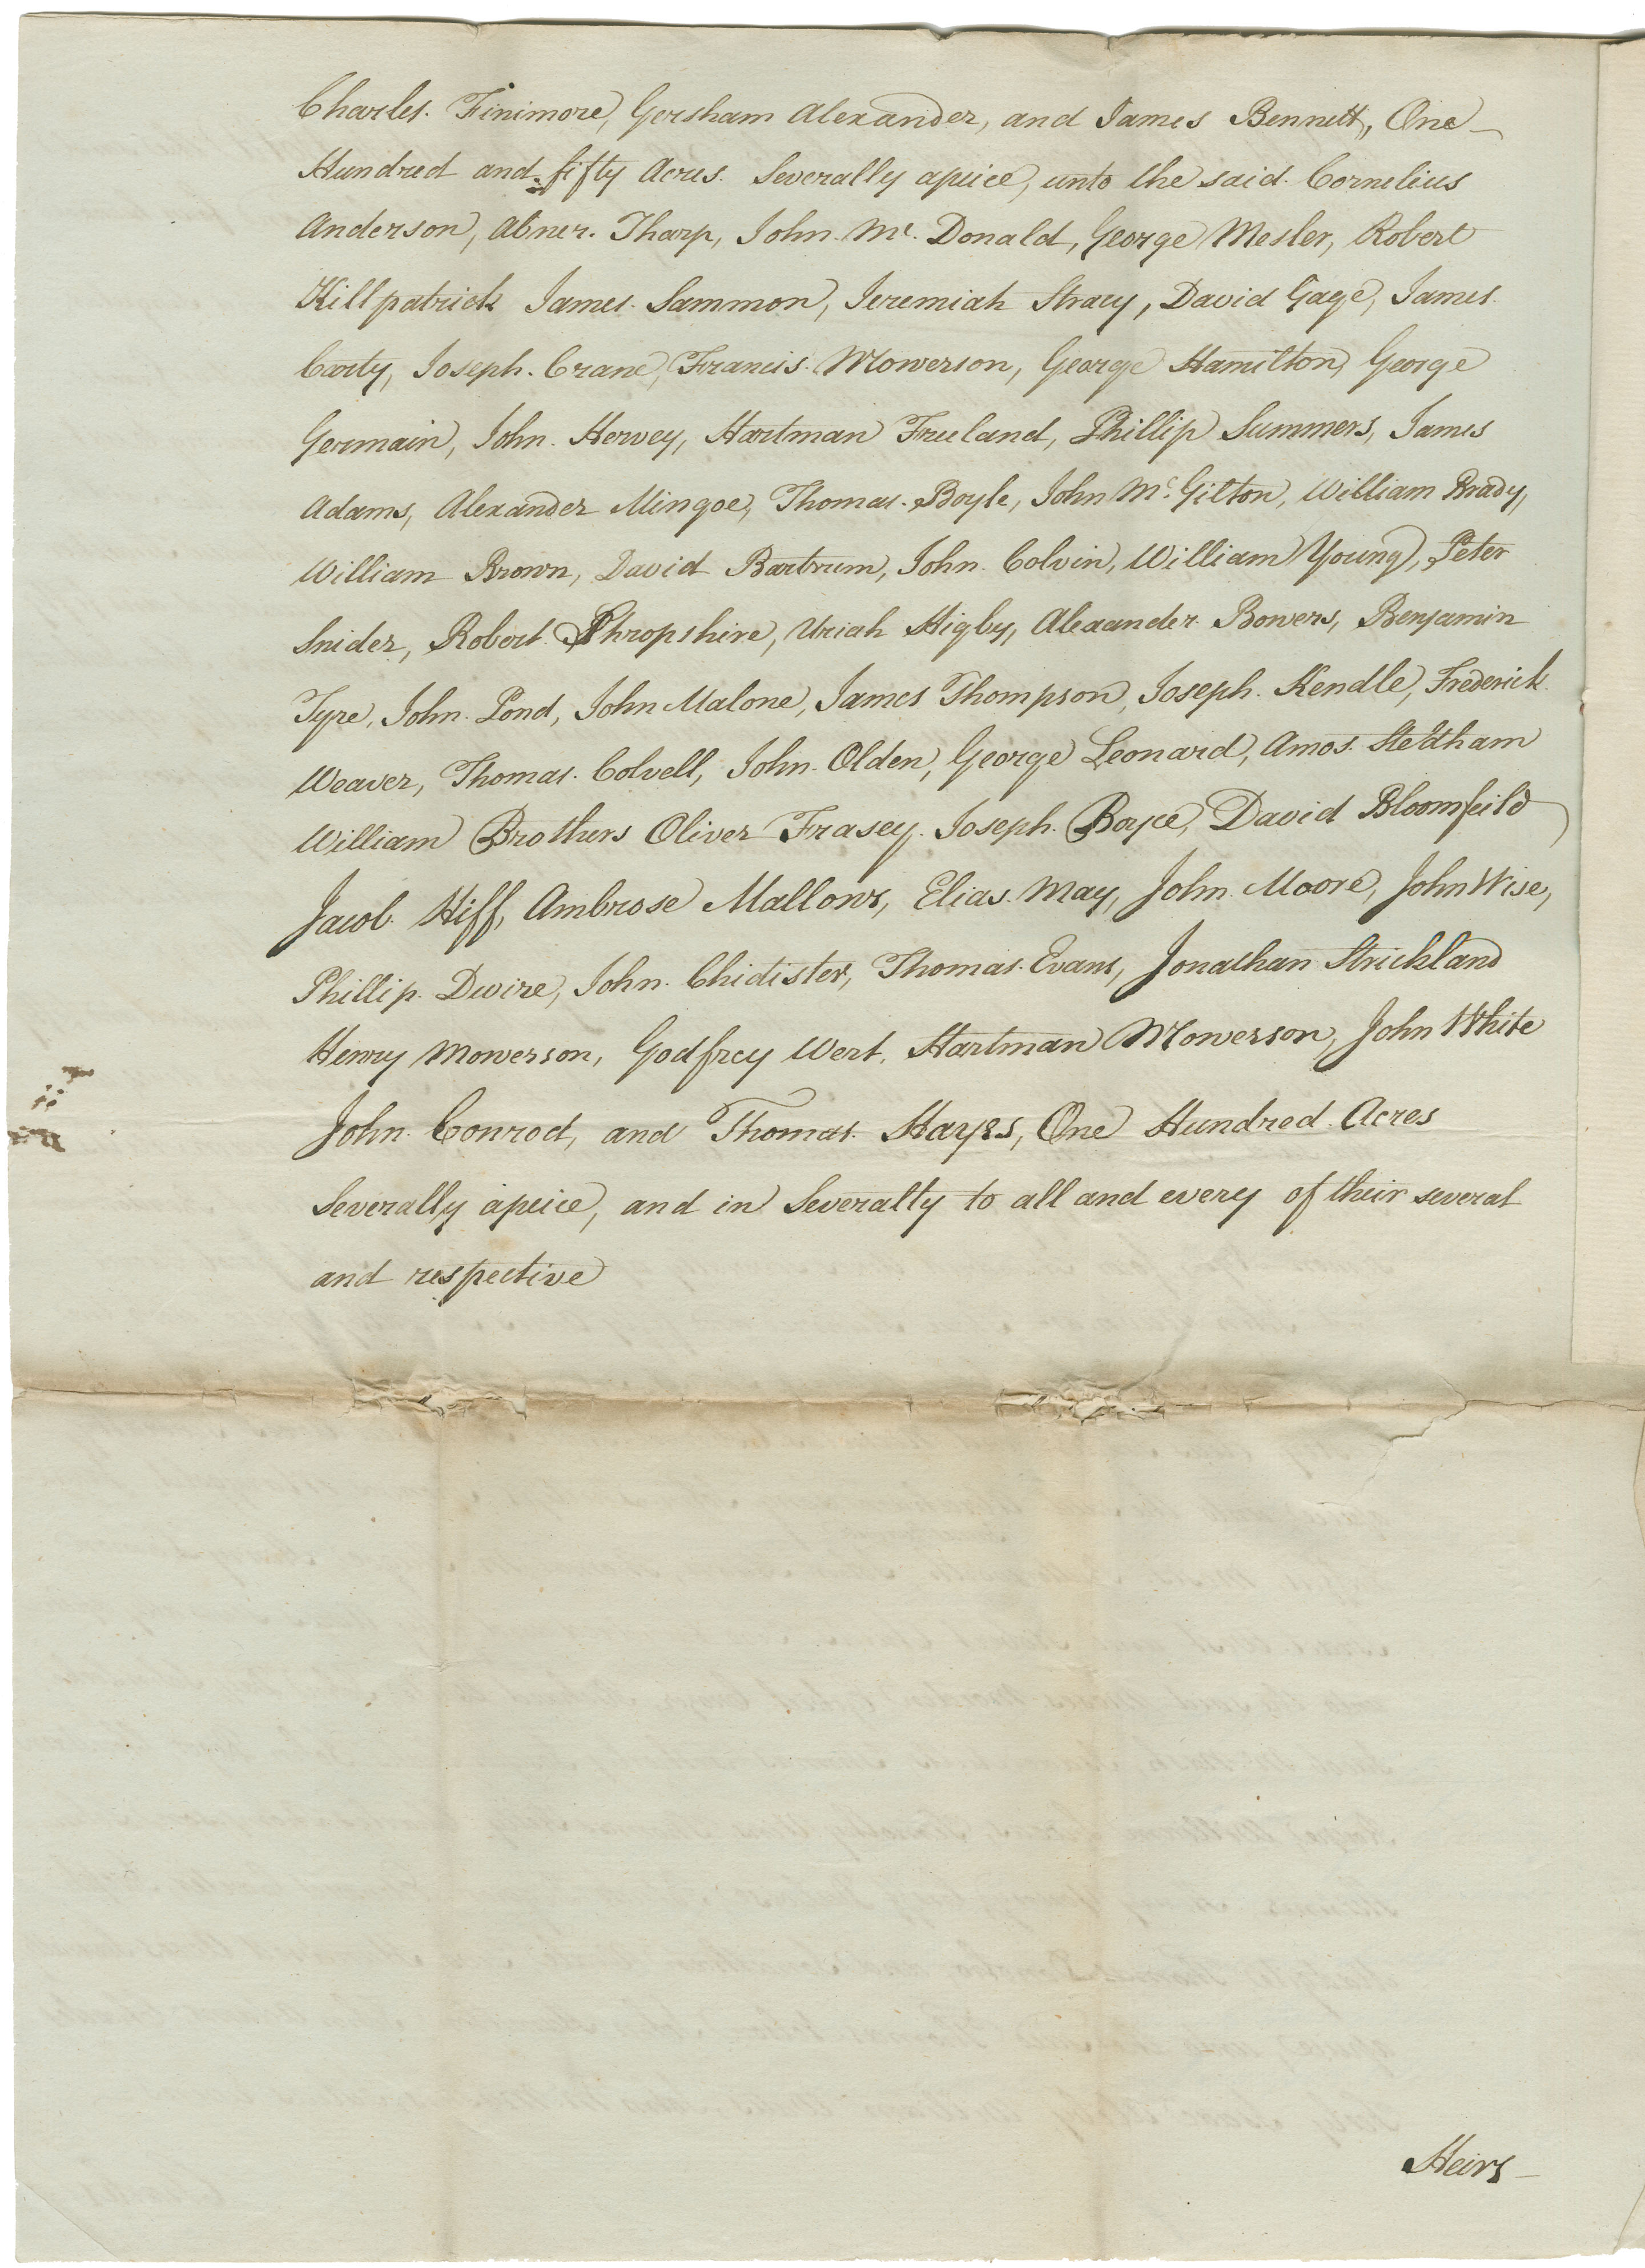 Charles. Finimore, Gersham Alexander, and James Bennett, One
Hundred and fifty Acres. Severally apiice, unto the said. Cornelius
Anderson, Abner. Tharp, John. Mc. Donald, George Mesler, Robert
Killpatrick James. Sammon, Jeremiah Stracy, David Gage, James.
Carty, Joseph. Crane, Francis. Mowerson, George Hamilton, George
Germain, John. Hervey, Hartman Freeland, Phillip Summers, James
Adams, Alexander Mingoe, Thomas. Boyle, John Mc. Gilton, William Brady,
William Brown, David Bartrum, John. Colvin, William Young, Peter
Snider, Robert Shropshire, Uriah Higby, Alexander. Bowers, Benjamin
Tyre, John. Pond, John Malone, James Thompson, Joseph. Kendle, Frederick.
Weaver, Thomas. Colvell, John. Olden, George Leonard, Amos. Stedham
William Brothers Oliver Frasey. Joseph. Boyce, David Bloomfeild
Jacob. Hiff, Ambrose Mallows, Elias. May, John. Moore, John Wise,
Phillip. Dwire, John. Chidister, Thomas. Evans, Jonathan Strickland
Henry Mowerson, Godfrey Wert, Hartman Mowerson, John White
John. Conrod, and Thomas. Hayes, One Hundred. Acres
Severally apeice, and in Severalty to all and every of their several
and respective
Heirs